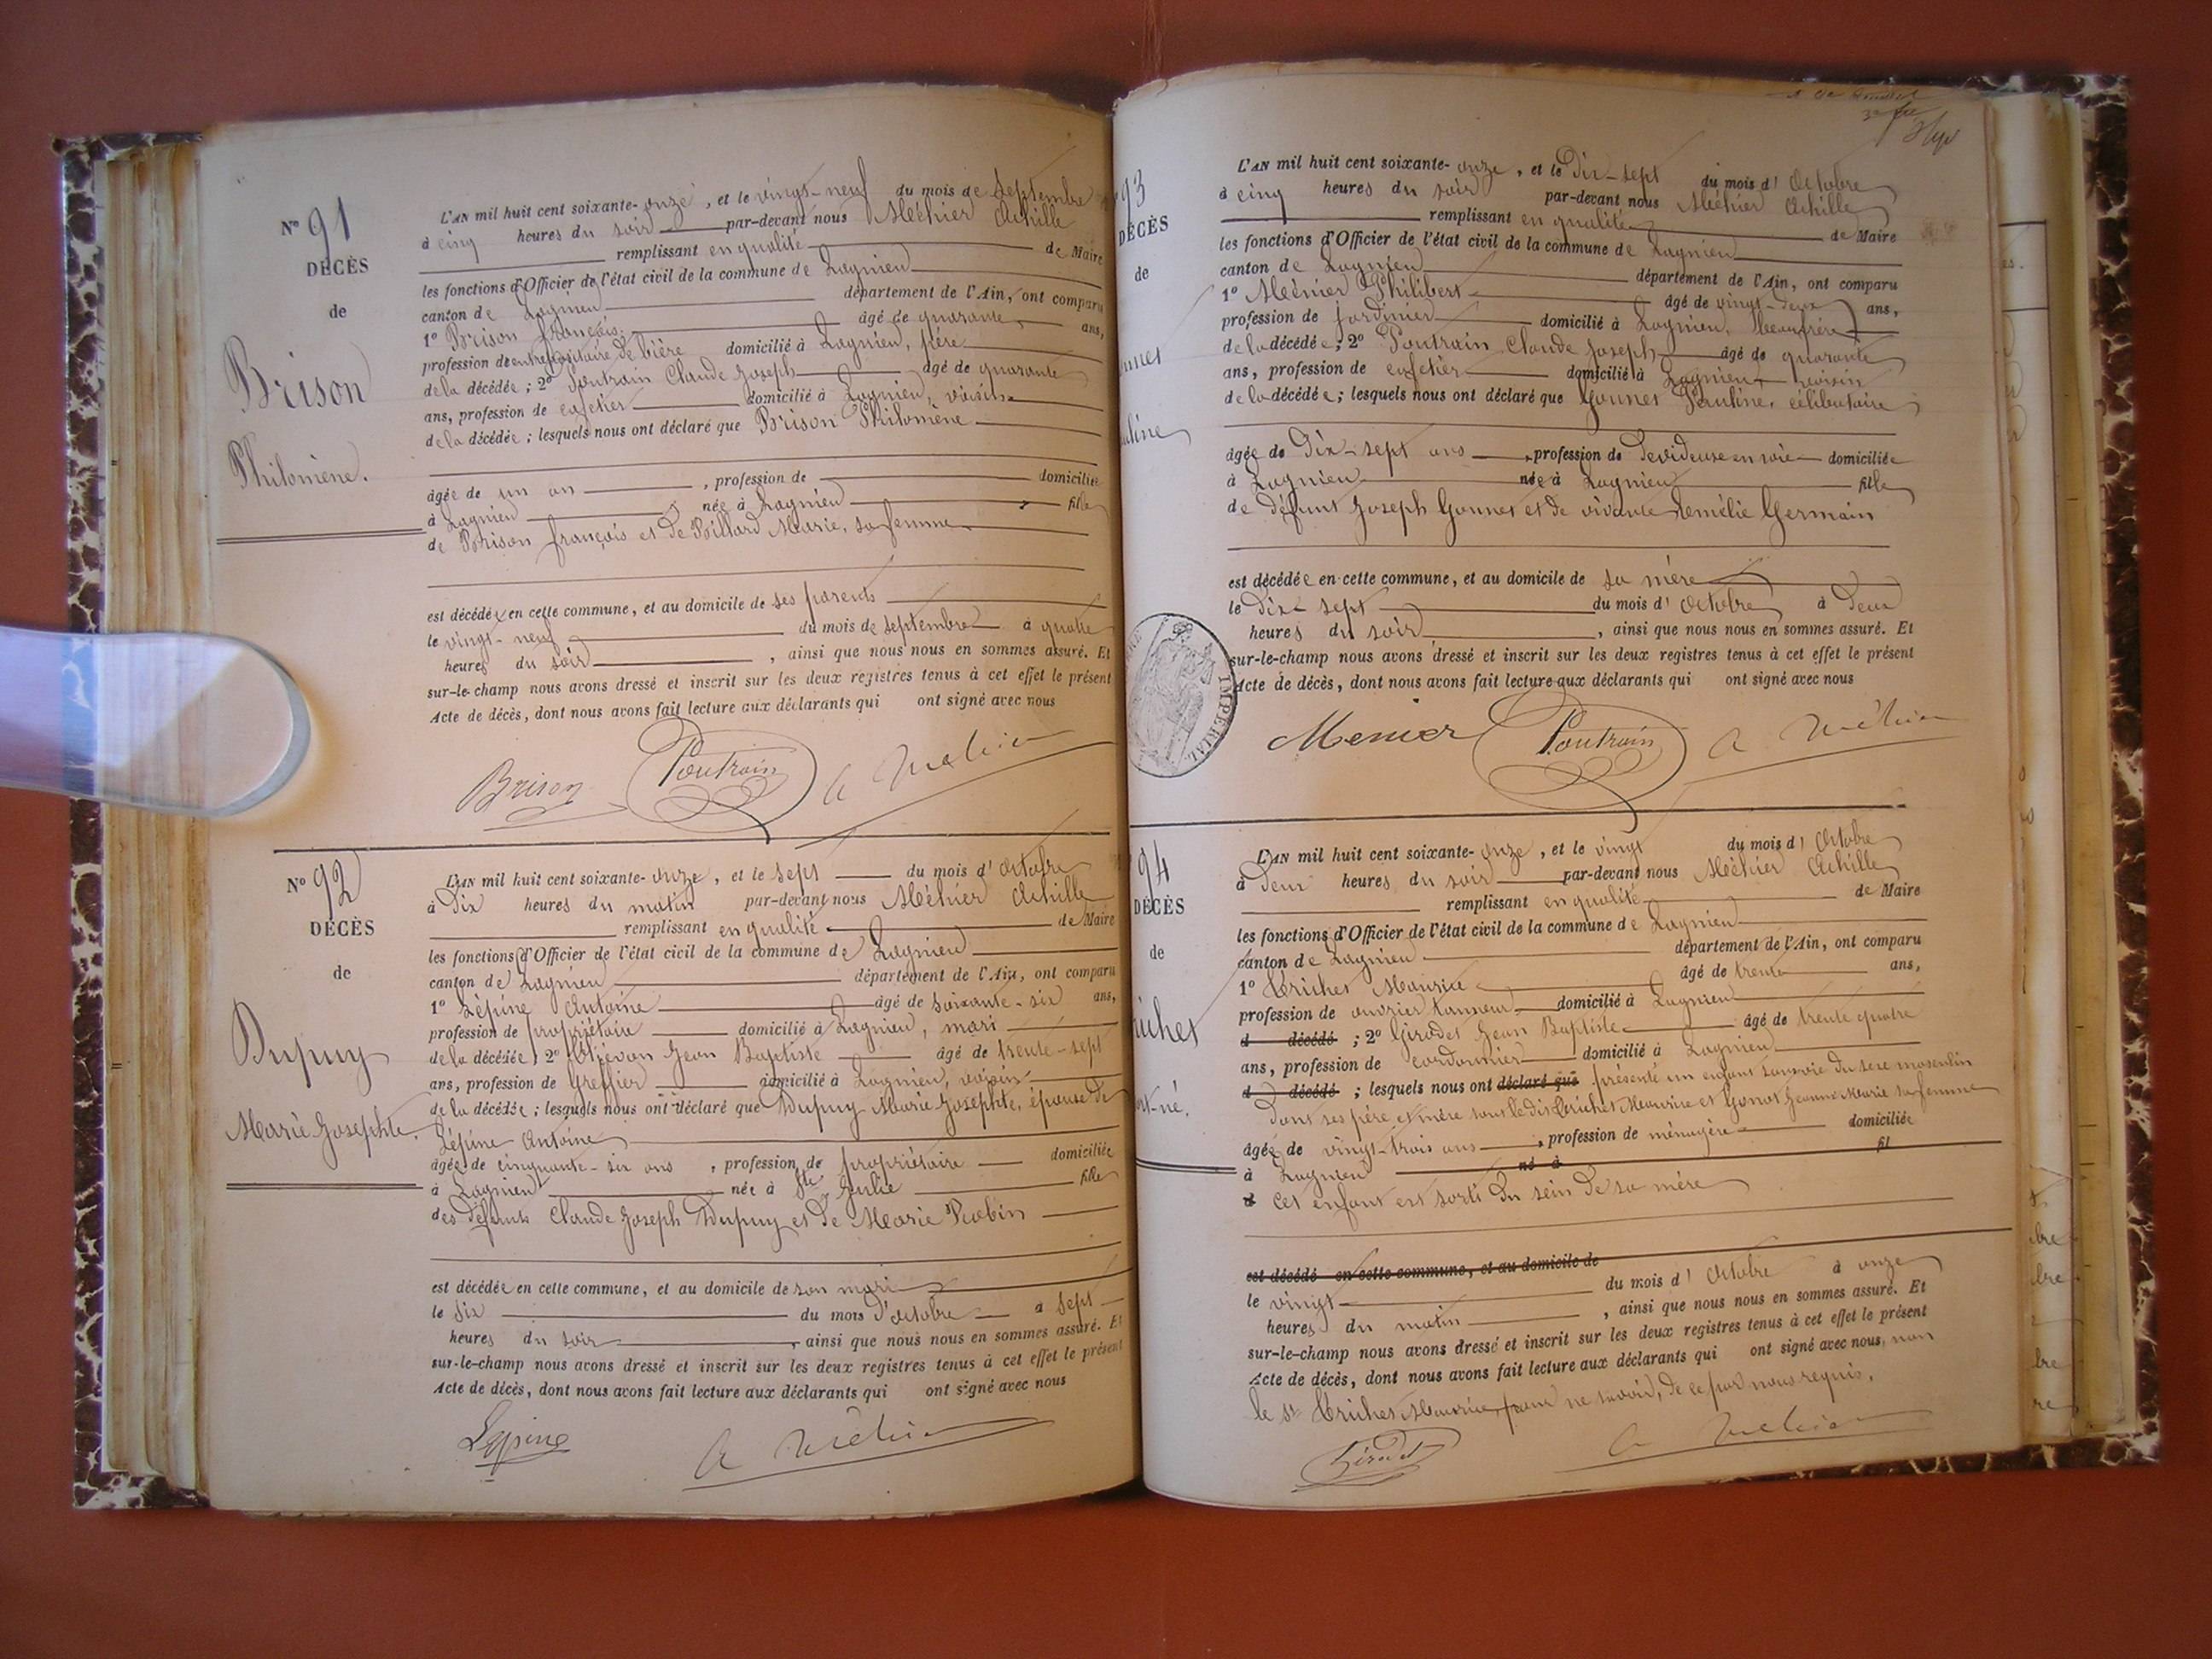 N° 91
DÉCÈS
de
Brison
Philomène.
L'AN mil huit cent soixante-onze, et le vingt-neuf du mois de Septembre
à cinq heures du soir par-devant nous Méhier Achille
remplissant en qualité de Maire
les fonctions d'Officier de l'état civil de la commune de Lagnieu
canton de Lagnieu département de l'Ain, ont comparu
1° Brison François âgé de quarante ans,
profession de entrepositaire de bière domicilié à Lagnieu, père
de la décédée; 2° Poutrain Claude Joseph âgé de quarante
ans, profession de cafetier domicilié à Lagnieu, voisin
de la décédée; lesquels nous ont déclaré que Brison Philomène
âgée de un an, profession de domiciliée
à Lagnieu née à Lagnieu fille
de Brison François et de Billard Marie, sa femme
est décédée en cette commune, et au domicile de ses parents
le vingt-neuf du mois de Septembre à quatre
heures du soir, ainsi que nous nous en sommes assuré. Et
sur-le-champ nous avons dressé et inscrit sur les deux registres tenus à cet effet le présent
Acte de décès, dont nous avons fait lecture aux déclarants qui ont signé avec nous
Brison Poutrain A Méhier
N° 92
DÉCÈS
de
Dupuy
Marie Josephte.
L'AN mil huit cent soixante-onze, et le sept du mois d'octobre
à dix heures du matin par-devant nous Méhier Achille
remplissant en qualité de Maire
les fonctions d'Officier de l'état civil de la commune de Lagnieu
canton de Lagnieu département de l'Ain, ont comparu
1° Lépine Antoine âgé de soixante-six ans,
profession de propriétaire domicilié à Lagnieu, mari
de la décédée; 2° Jean Baptiste âgé de trente-sept
ans, profession de Greffier domicilié à Lagnieu, voisin
de la décédée; lesquels nous ont déclaré que Dupuy Marie Josephte, épouse de
Lépine Antoine
âgée de cinquante-six ans, profession de propriétaire domiciliée
à Lagnieu née à Ste Julie fille
des défunts Claude Joseph Dupuy et de Marie Robin
est décédée en cette commune, et au domicile de son mari
le six du mois d'octobre à sept
heures du soir, ainsi que nous nous en sommes assuré. Et
sur-le-champ nous avons dressé et inscrit sur les deux registres tenus à cet effet le présent
Acte de décès, dont nous avons fait lecture aux déclarants qui ont signé avec nous
Lepine A Méhier
93
DÉCÈS
de
L'AN mil huit cent soixante-onze, et le Dix-sept du mois d'Octobre
à cinq heures du soir par-devant nous Méhier Achille
remplissant en qualité de Maire
les fonctions d'Officier de l'état civil de la commune de Lagnieu
canton de Lagnieu département de l'Ain, ont comparu
1° Méhier Philibert âgé de vingt-deux ans,
profession de jardinier domicilié à Lagnieu, beaufrère
de la décédée; 2° Poutrain Claude Joseph âgé de quarante
ans, profession de cafetier domicilié à Lagnieu, voisin
de la décédée; lesquels nous ont déclaré que Gounet Pauline, célibataire
âgée de Dix-sept ans, profession de Dévideuse en soie domiciliée
à Lagnieu née à Lagnieu fille
de défunt Joseph Gounet et de vivante Germain
est décédée en cette commune, et au domicile de sa mère
le Dix-sept du mois d'Octobre à Deux
heures du soir, ainsi que nous nous en sommes assuré. Et
sur-le-champ nous avons dressé et inscrit sur les deux registres tenus à cet effet le présent
Acte de décès, dont nous avons fait lecture aux déclarants qui ont signé avec nous
IMPERIAL
Menier Poutrain A Méhier
94
DÉCÈS
de
L'AN mil huit cent soixante-onze, et le vingt du mois d'Octobre
à Deux heures du soir par-devant nous Méhier Achille
remplissant en qualité de Maire
les fonctions d'Officier de l'état civil de la commune de Lagnieu
canton de Lagnieu département de l'Ain, ont comparu
1° Maurice âgé de trente ans,
profession de ouvrier tanneur domicilié à Lagnieu
d décédé; 2° Girodet Jean Baptiste âgé de trente quatre
ans, profession de cordonnier domicilié à Lagnieu
d décédé; lesquels nous ont déclaré que présenté un enfant sans vie du sexe masculin
dont ses père et mère sont le dit Maurice et Jeanne Marie sa femme
âgée de vingt-trois ans, profession de ménagère domiciliée
à Lagnieu né à fil
d cet enfant est sorti du sein de sa mère
est décédé en cette commune, et au domicile de
le vingt du mois d'Octobre à onze
heures du matin, ainsi que nous nous en sommes assuré. Et
sur-le-champ nous avons dressé et inscrit sur les deux registres tenus à cet effet le présent
Acte de décès, dont nous avons fait lecture aux déclarants qui ont signé avec nous, non
le Sr Maurice pour ne savoir, de ce par nous requis.
Girodet A Méhier